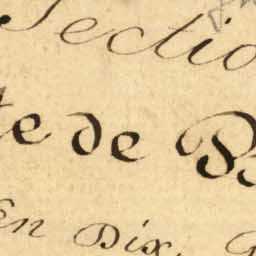 Sectio
te de B
En Dix,